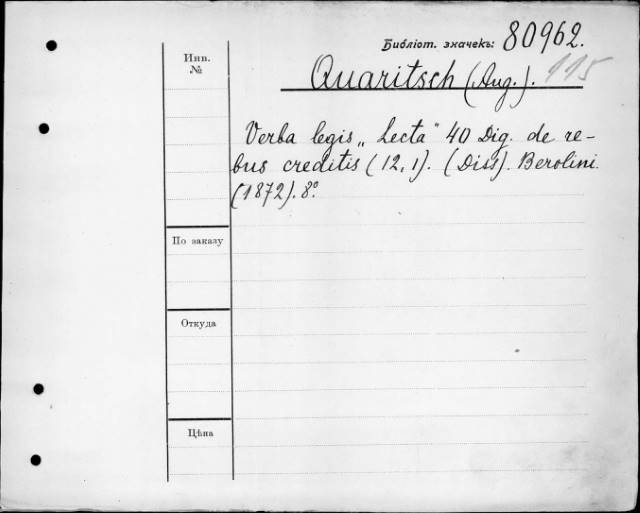 Библіот. значекъ: 80962.
Инв.
№
Quaritsch (Aug.). 115
Verba legis „Lecta“ 40 Dig. de re-
bus creditis (12,1). (Diss). Berolini.
(1872). 8º.
По заказу
Откуда
Цѣна